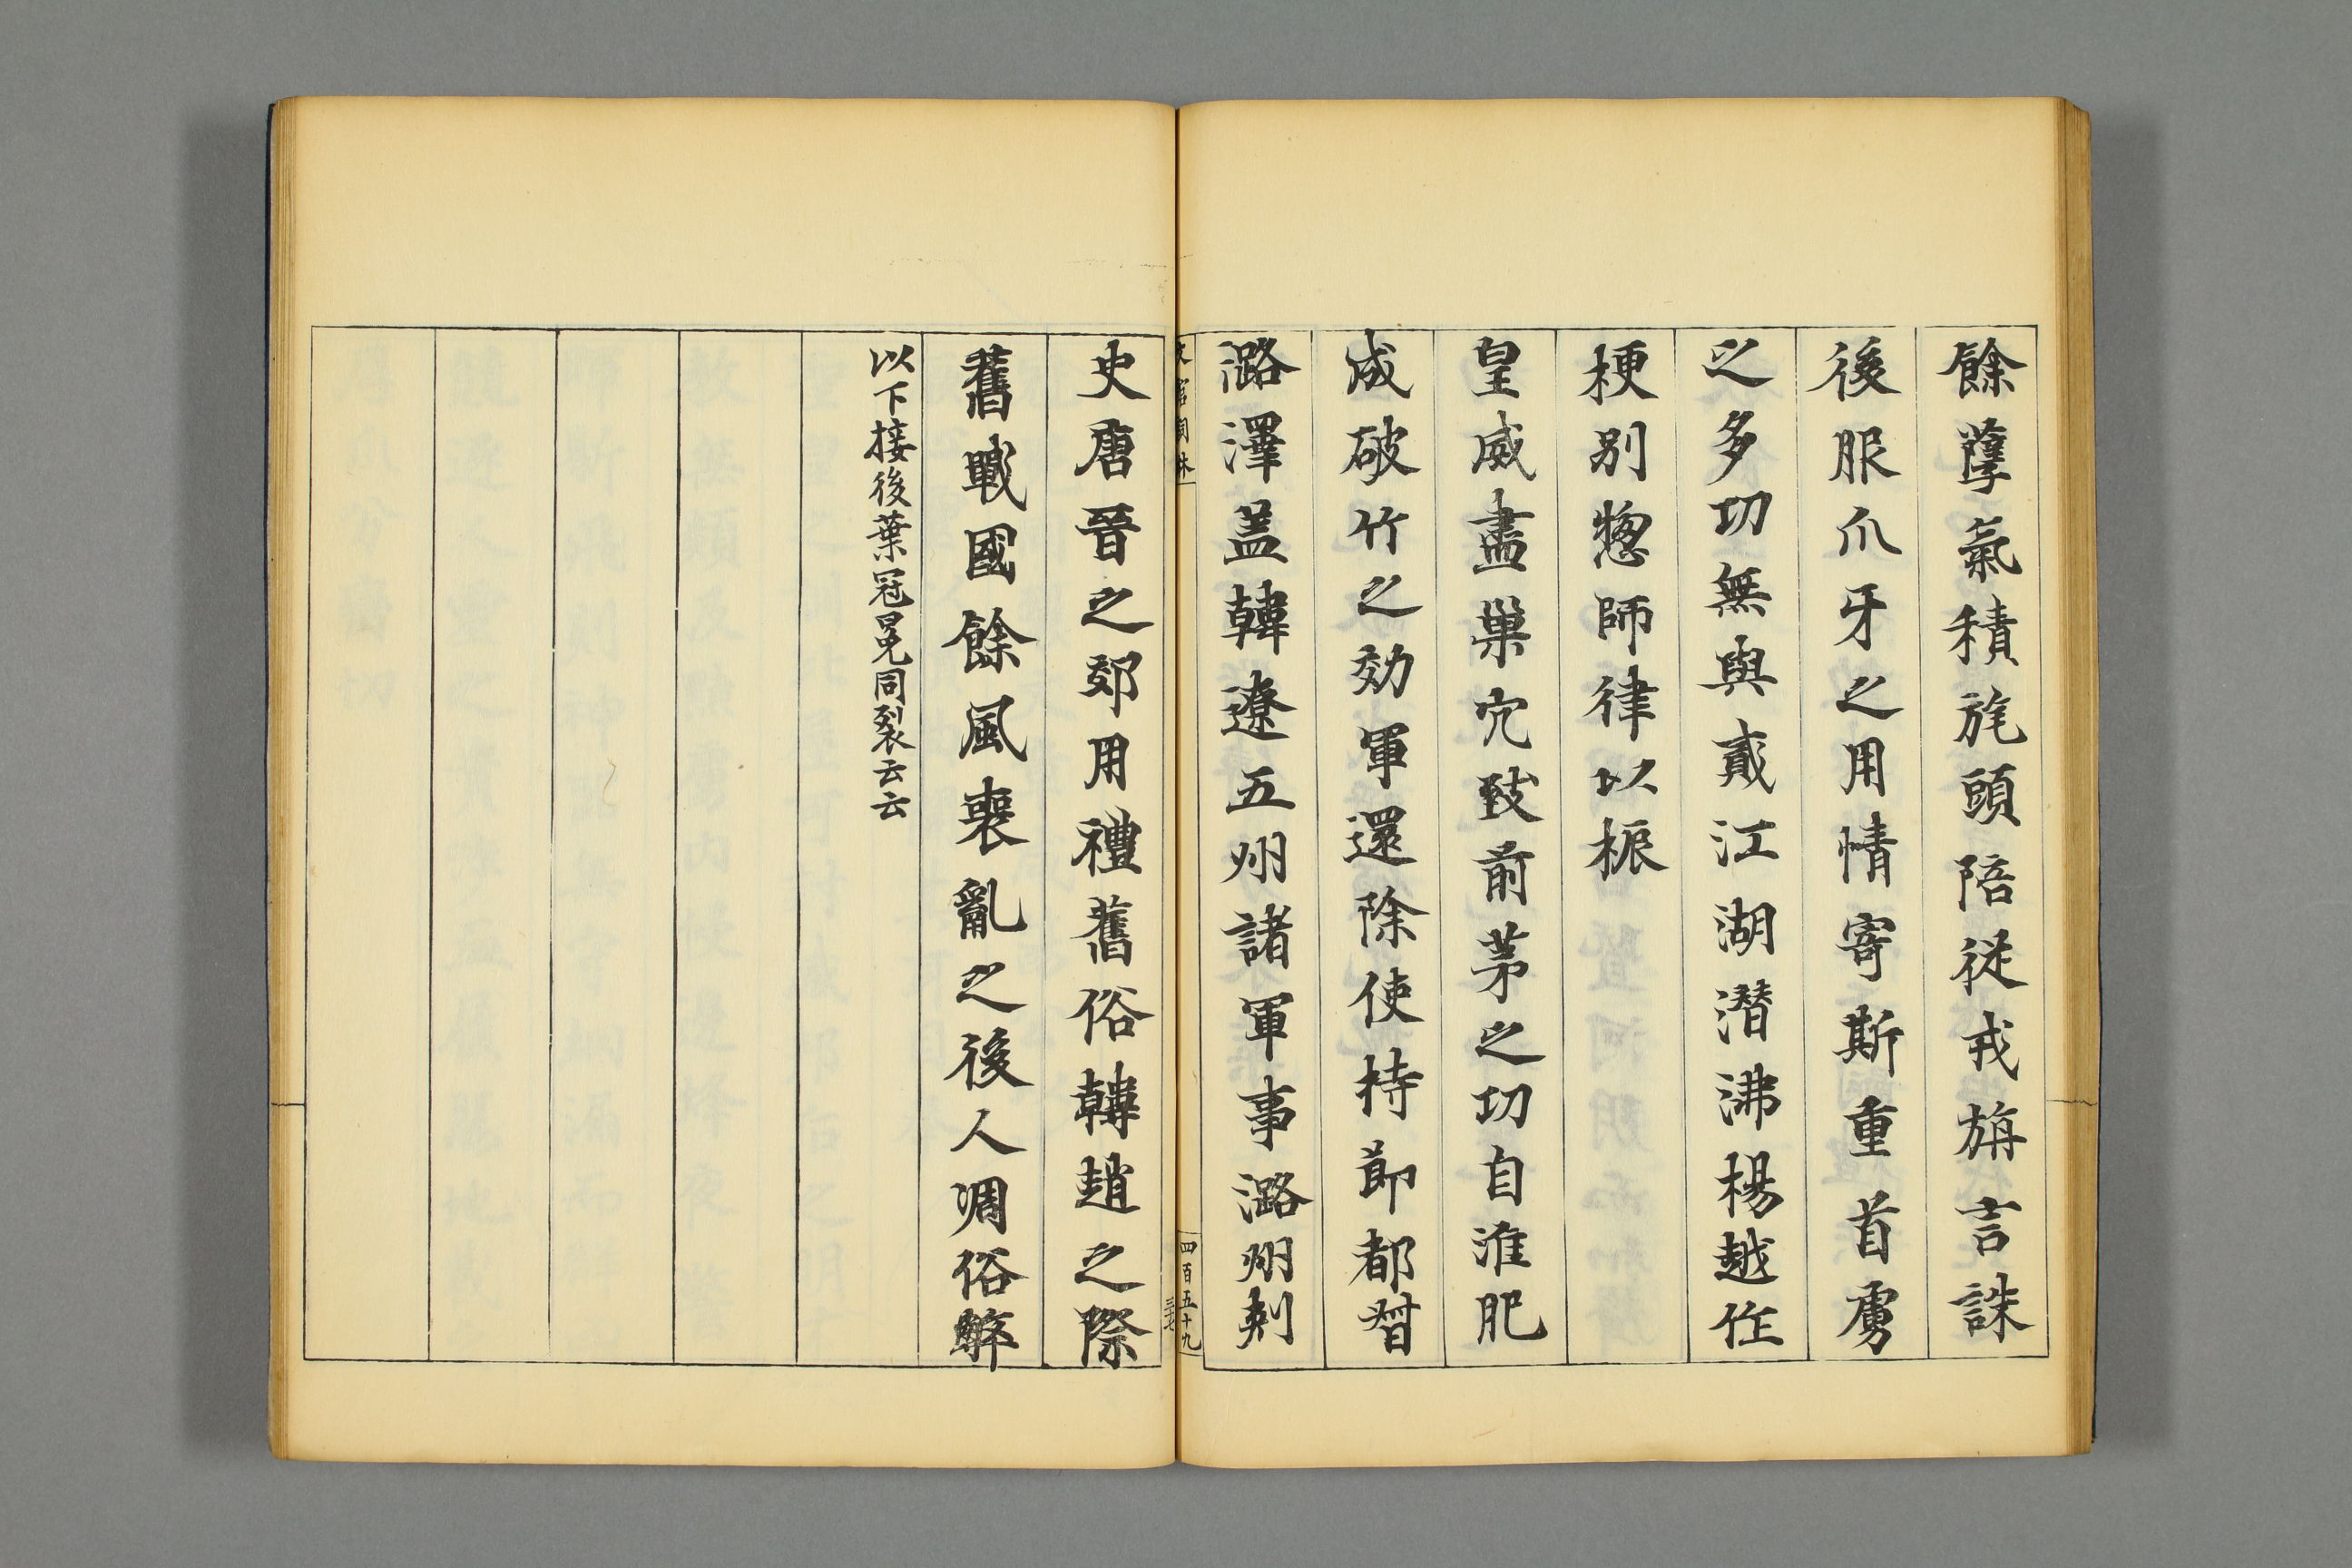 餘孽氣積旄頭陪從戎旃言誅
後服爪牙之用情寄斯重首虜
之多功無與貳江湖潜沸楊越作
梗别惣師律以振
皇威盡巢穴致前茅之功自淮肥
成破竹之効軍還除使持節都督
潞澤蓋韓遼五州諸軍事潞州刺
文館詞林
四百五十九
三七
史唐晉之郊用禮舊俗轉趙之際
舊戰國餘風喪亂之後人凋俗弊
以下接後葉冠冕同裂云云